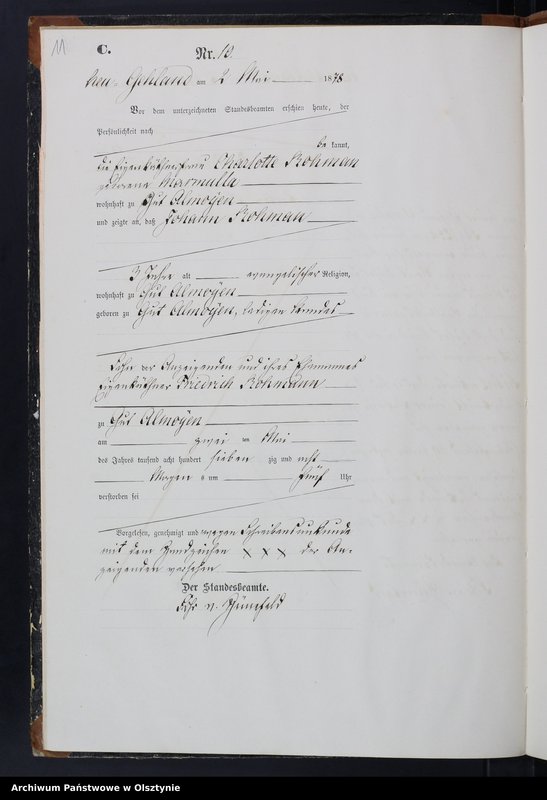 11
C.
Nr. 10.
Neu-Gehland am 2 Mai 1878
Vor dem unterzeichneten Standesbeamten erschien heute, der
Persönlichkeit nach
be kannt,
die Eigenkäthnerfrau Charlotte Rohman
geborene Marmulla
wohnhaft zu Gut Almoyen
und zeigte an, daß Johann Rohman
3 Jahre alt evangelischer Religion,
wohnhaft zu Gut Almoyen
geboren zu Gut Almoyen, ledigen Standes
Sohn der Anzeigenden und ihres Ehemannes
Eigenkäthner Friedrich Rohmann
zu Gut Almoyen
am zwei ten Mai
des Jahres tausend acht hundert sieben zig und acht
Morgens um fünf Uhr
verstorben sei
Vorgelesen, genehmigt und wegen Schreibensunkunde
mit dem Handzeichen XXX der An-
zeigenden versehen
Der Standesbeamte.
Archiwum Państwowe w Olsztynie